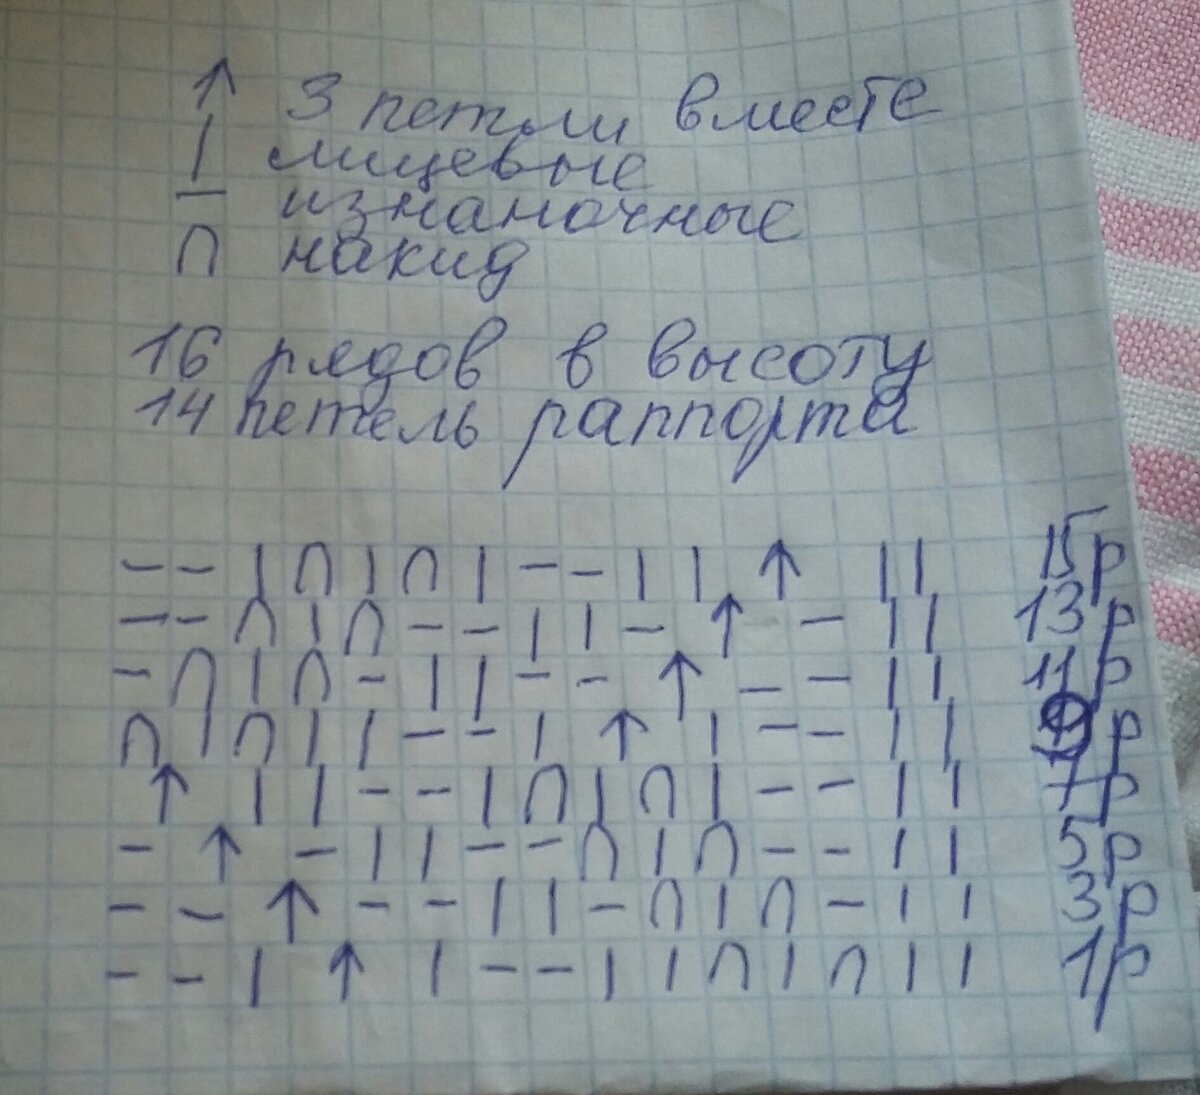 ↑ 3 петли вместе
| лицевые
— изнаночные
∩ накид
16 рядов в высоту
14 петель раппорта
– – | ∩ | ∩ | – – | | ↑ | | 15р
– – ∩ | ∩ – – | | – ↑ – | | 13р
– ∩ | ∩ – | | – – ↑ – – | | 11р
∩ | ∩ | | – – | ↑ | – – | | 9р
↑ | | – – | ∩ | ∩ | – – | | 7р
– ↑ – | | – – ∩ | ∩ – – | | 5р
– – ↑ – – | | – ∩ | ∩ – | | 3р
– – | ↑ | – – | | ∩ | ∩ | | 1р